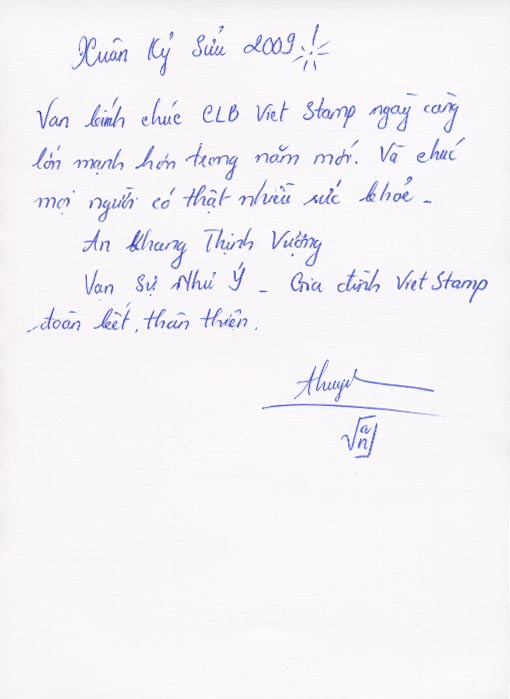 Xuân Kỷ Sửu 2009
Van kính chúc CLB Viet Stamp ngày càng
lớn mạnh hơn trong năm mới. Và chúc
mọi người có thật nhiều sức khỏe -
An Khang Thịnh Vượng
Vạn Sự Như Ý - Gia đình Viet Stamp
đoàn kết, thân thiện.